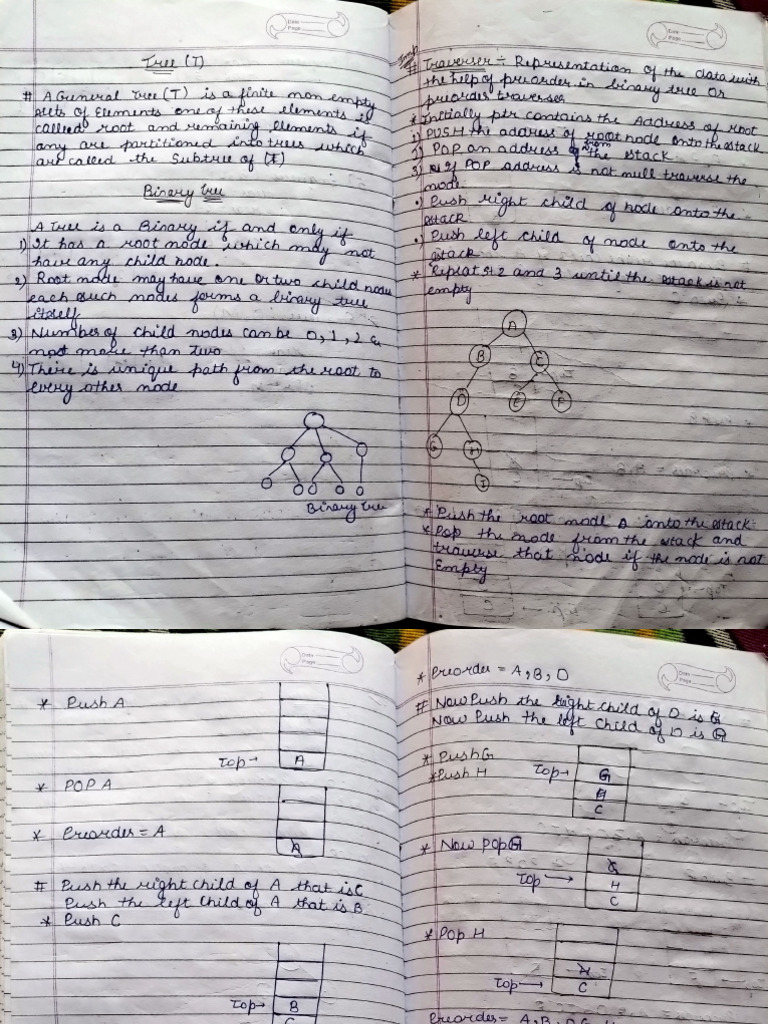 Date
Page
Tree (T)
# A General Tree (T) is a finite non empty
sets of Elements one of these elements is
called root and remaining elements if
any are partitioned into trees which
are called the Subtree of (T)
Binary tree
A Tree is a Binary if and only if
1) It has a root node which may not
have any child node.
2) Root node may have one or two child node
each such nodes forms a binary tree
itself
3) Number of child nodes can be 0, 1, 2
not more than Two
4) There is unique path from the root to
every other node
Binary tree
Date
Page
Imp
# Traverser :- Representation of the data with
the help of preorder in binary tree or
preorder traverser
* Initially ptr contains the Address of root
1) PUSH the address of root node onto the stack
2) POP an address from the stack
3) If POP address is not null traverse the
node
•) Push right child of node onto the
stack
•) Push left child of node onto the
stack
* Repeat St 2 and 3 until the stack is not
empty
A
B C
D E F
G H
I
* Push the root node A onto the stack
* Pop the node from the stack and
traverse that node if the node is not
Empty
Date
Page
* Push A
Top→ A
* POP A
* Preorder = A
A
# Push the right child of A that is C
Push the left Child of A that is B
* Push C
Top→ B
C
Date
Page
* Preorder = A, B, D
# Now Push the Right child of D is
Now Push the left Child of D is G
* Push G
* Push H
Top→ G
H
C
* Now POP G
G
Top→ H
C
* POP H
H
Top→ C
Preorder = A, B, D, G, H